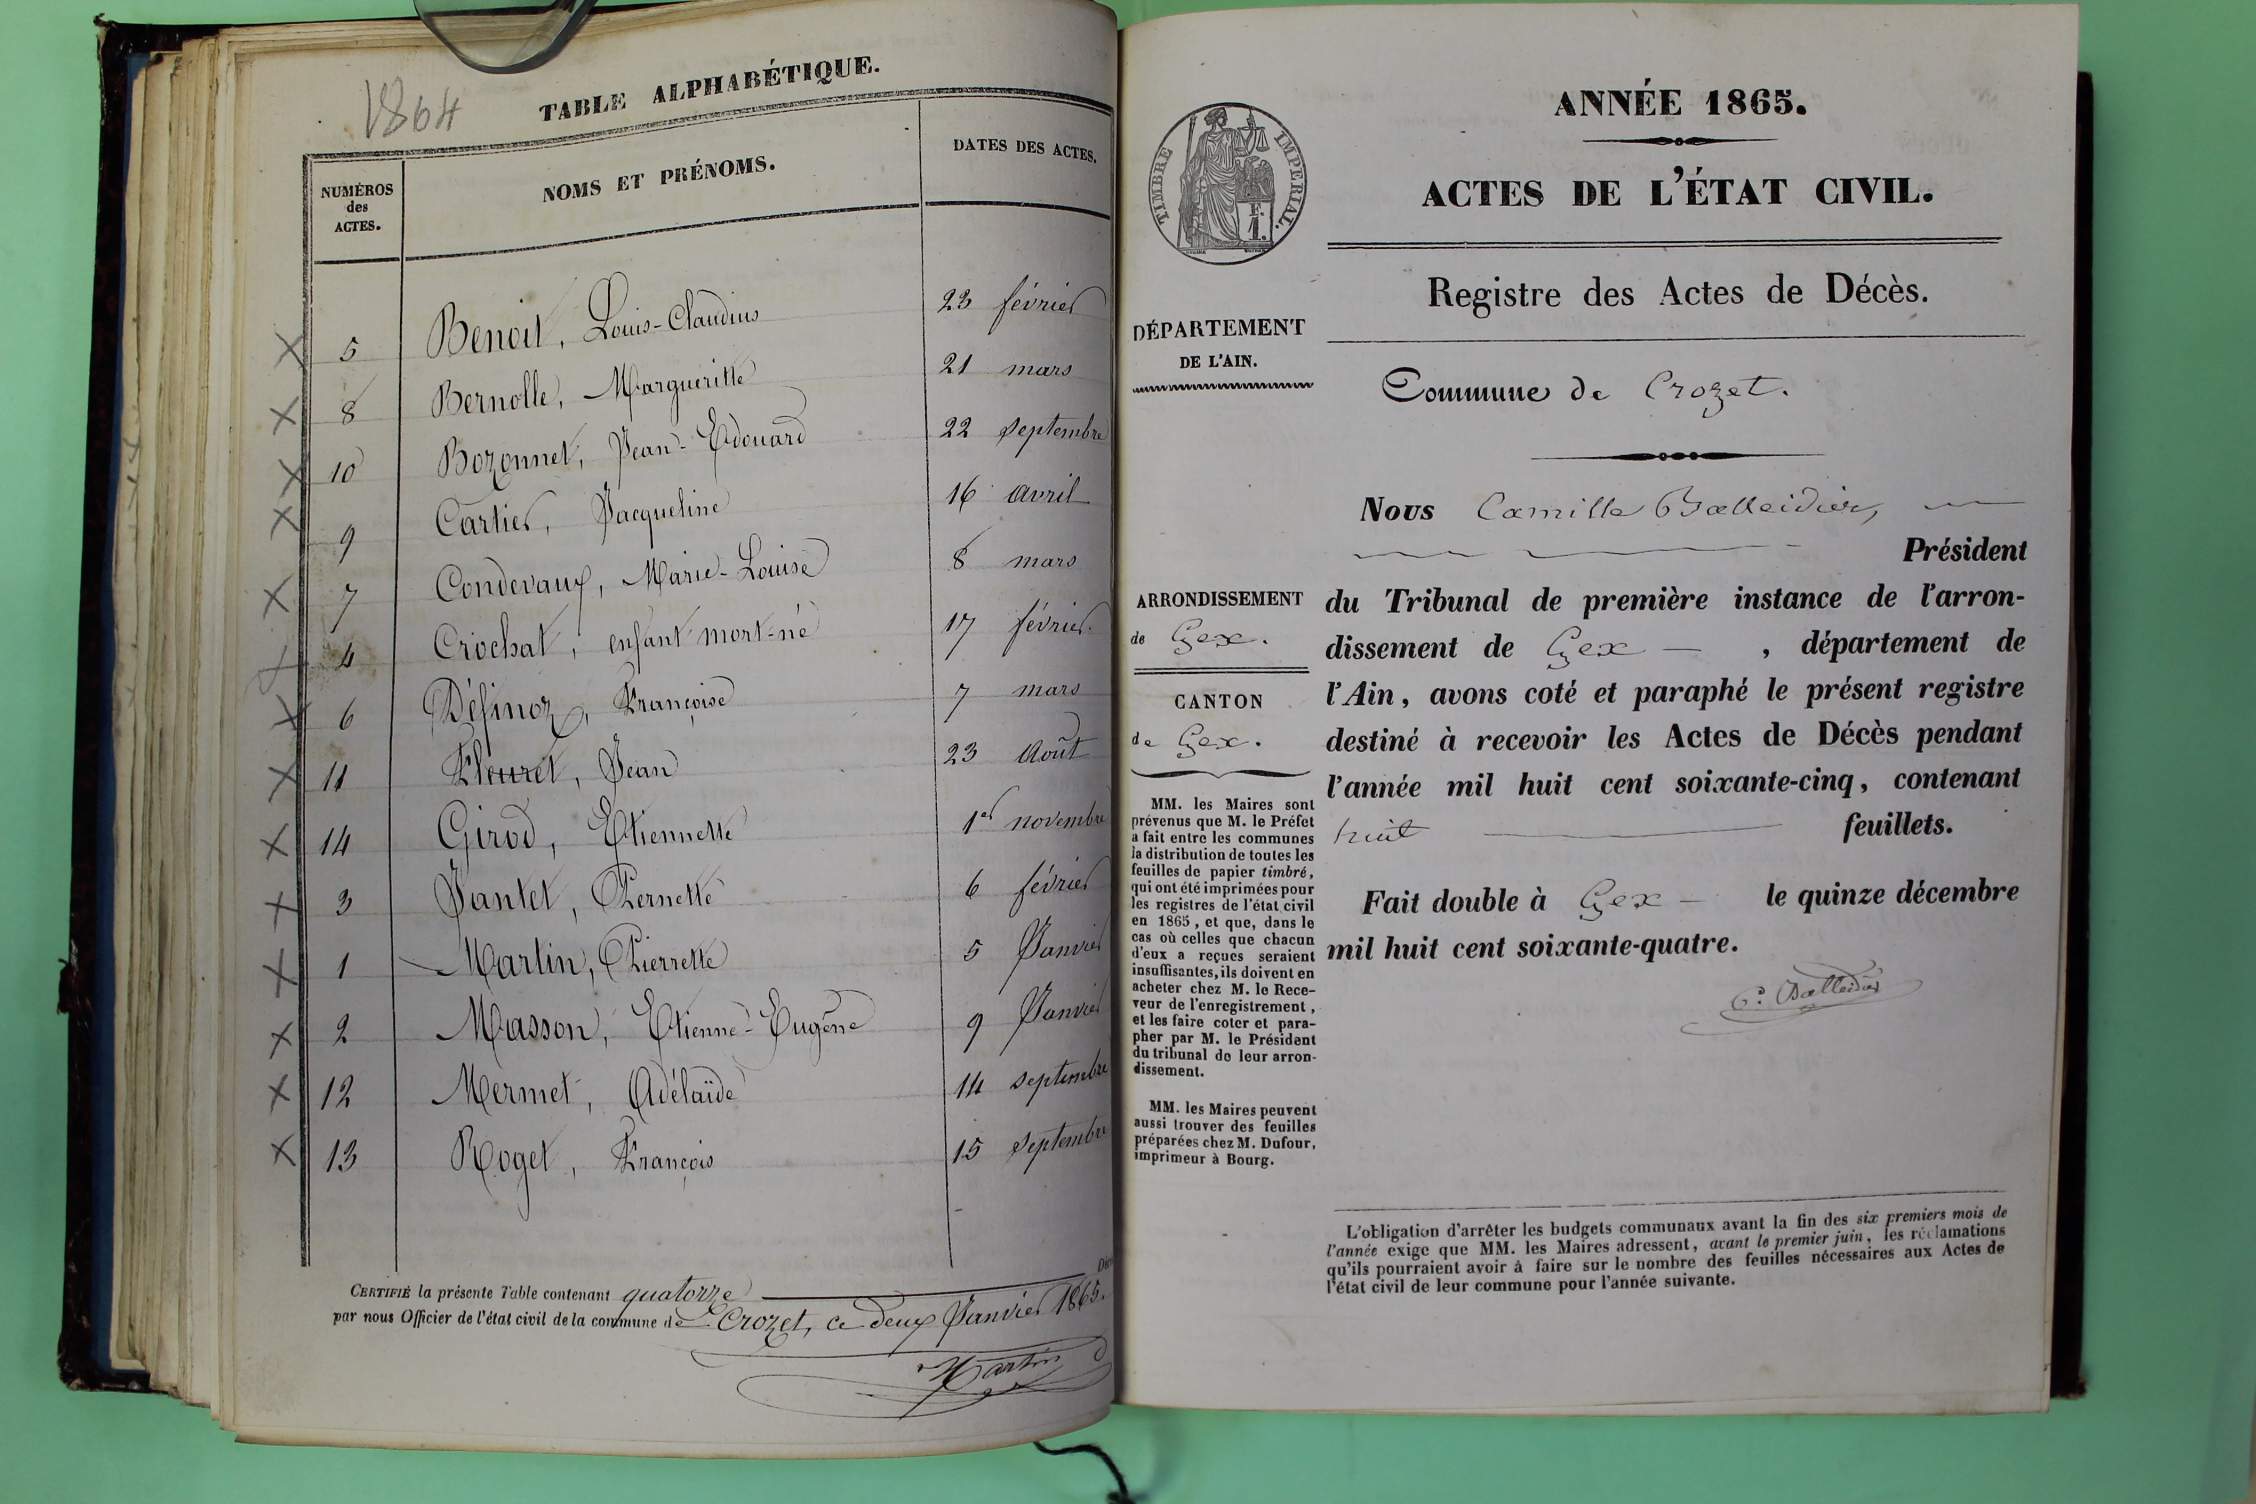 1864
TABLE ALPHABÉTIQUE.
NUMÉROS
des
ACTES.
NOMS ET PRÉNOMS.
DATES DES ACTES.
5 Benoit, Louis-Claudius 23 février
8 Bernolle, Margueritte 21 mars
10 Bozonnet, Jean-Edouard 22 septembre
9 Cartier, Jacqueline 16 avril
7 Condevaux, Marie-Louise 8 mars
4 Crochat, enfant mort-né 17 février.
6 Définoz, Françoise 7 mars
11 Fleuret, Jean 23 Août
14 Girod, Etiennette 1er novembre
3 Jantet, Pernette 6 février
1 Martin, Pierrette 5 Janvier
2 Masson, Etienne-Eugène 9 Janvier
12 Mermet, Adélaïde 14 septembre
13 Roget, François 15 septembre
CERTIFIÉ la présente Table contenant quatorze
par nous Officier de l'état civil de la commune de Crozet, ce deux Janvier 1865.
Martin
TIMBRE IMPERIAL.
F.
1.
DÉPARTEMENT
DE L'AIN.
ARRONDISSEMENT
de Gex.
CANTON
de Gex.
MM. les Maires sont
prévenus que M. le Préfet
a fait entre les communes
la distribution de toutes les
feuilles de papier timbré,
qui ont été imprimées pour
les registres de l'état civil
en 1865, et que, dans le
cas où celles que chacun
d'eux a reçues seraient
insuffisantes, ils doivent en
acheter chez M. le Rece-
veur de l'enregistrement,
et les faire coter et para-
pher par M. le Président
du tribunal de leur arron-
dissement.
MM. les Maires peuvent
aussi trouver des feuilles
préparées chez M. Dufour,
imprimeur à Bourg.
ANNÉE 1865.
ACTES DE L'ÉTAT CIVIL.
Registre des Actes de Décès.
Commune de Crozet.
Nous Camille Balleidier,
Président
du Tribunal de première instance de l'arron-
dissement de Gex , département de
l'Ain, avons coté et paraphé le présent registre
destiné à recevoir les Actes de Décès pendant
l'année mil huit cent soixante-cinq, contenant
huit feuillets.
Fait double à Gex le quinze décembre
mil huit cent soixante-quatre.
C. Balleidier
L'obligation d'arrêter les budgets communaux avant la fin des six premiers mois de
l'année exige que MM. les Maires adressent, avant le premier juin, les réclamations
qu'ils pourraient avoir à faire sur le nombre des feuilles nécessaires aux Actes de
l'état civil de leur commune pour l'année suivante.